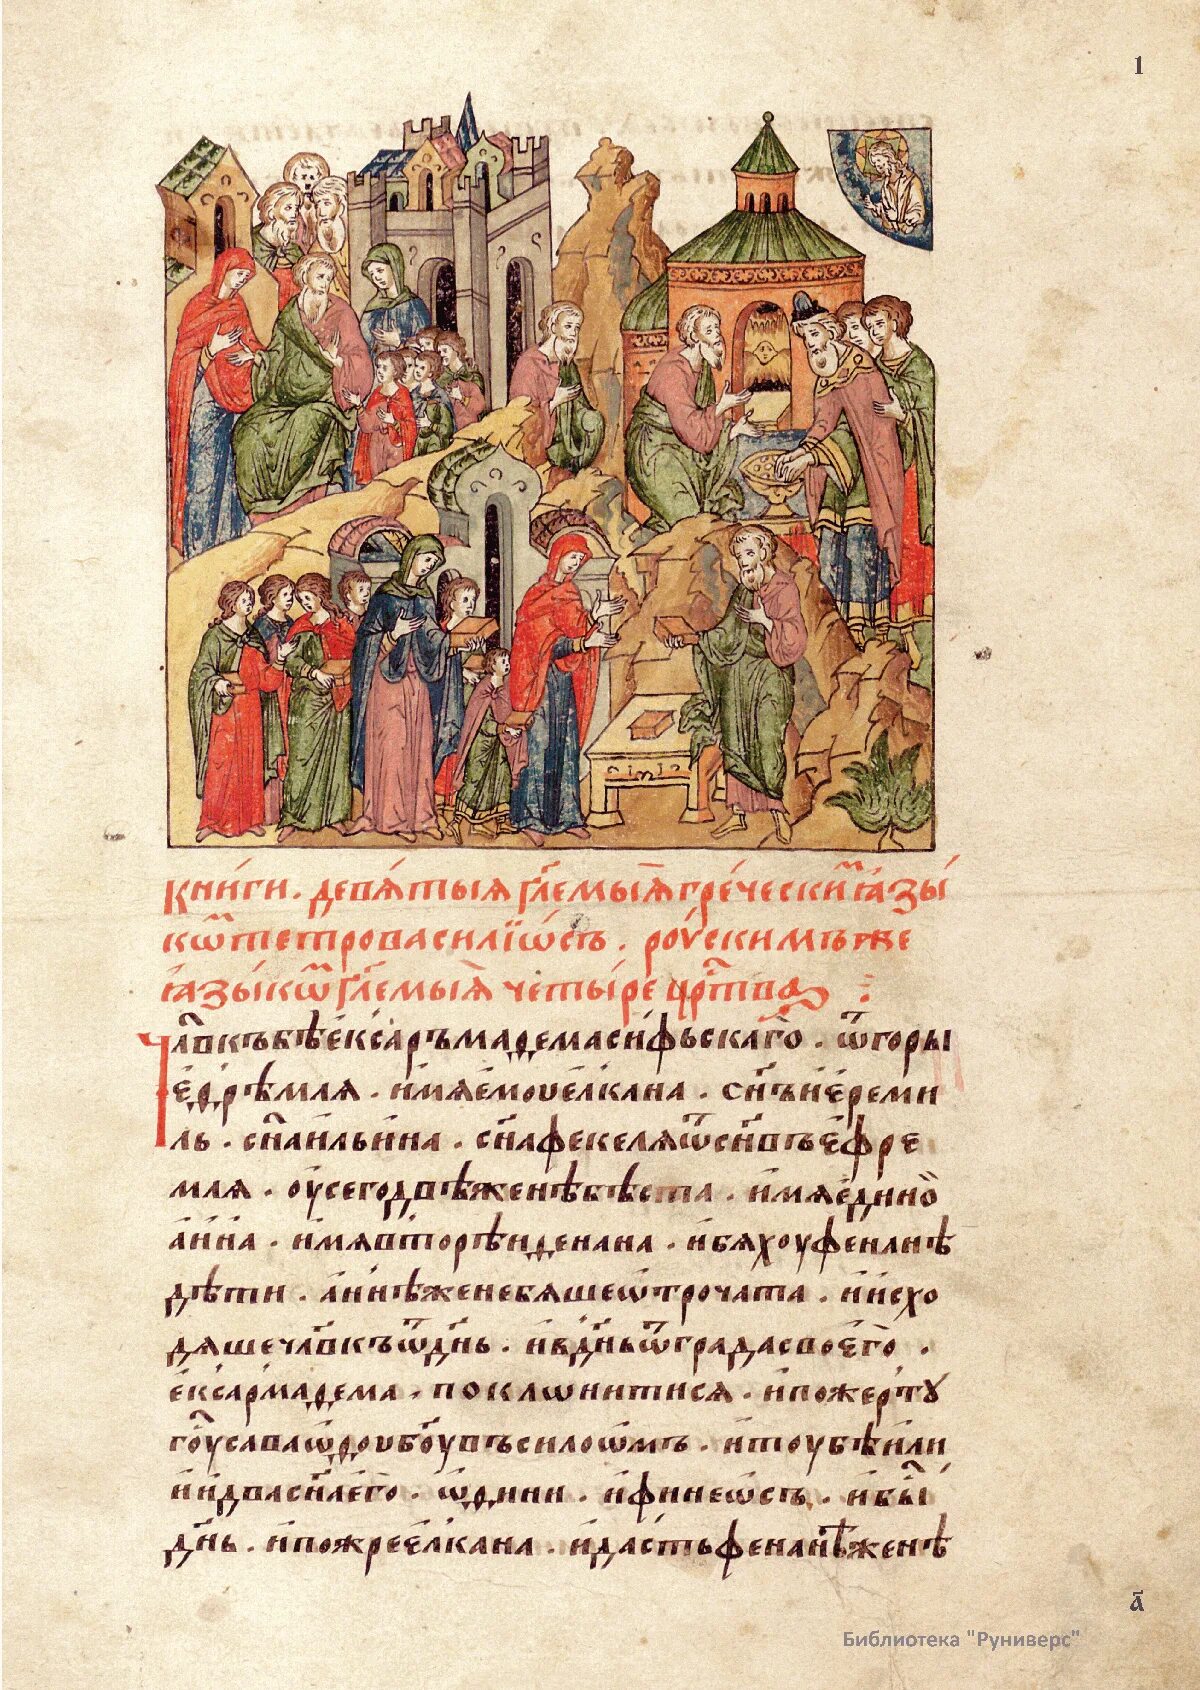 1
кни́ги . девѧ́тыѧ гл҃емыѧ̀ гре́чески ꙗ҆зы́
кѡ тетровасилїѡ́съ . роу́скимъ же
ꙗ҆зы́кѡ гл҃емыѧ̀ четы́ре црⷭ҇тваꙗ
Чл҃вкъ бѣ є҆ксаръмадема си́фьскаго . ѿ горы
є҆дрѣмлѧ . и҆мѧ є҆моу є҆лкана . сн҃ъ и҆є҆реми
ль . сн҃а и҆льина . сн҃а фекелѧ ѿ сн҃въ є҆фре
млѧ . оу҆ сего двѣ женѣ бѣста . и҆мѧ є҆дино
а҆нна . и҆мѧ вторѣи денана . и҆ бѧхоу фенанѣ
дѣти . а҆ннѣ же не бѧше ѡ҆трочата . и҆ и҆схо
дѧше чл҃вкъ ѿ дн҃ь . и҆ в дн҃ь ѿ града своє҆го .
є҆ксармадема . поклонитисѧ . и҆ пожерті ꙋ
гоу саваѡдоу бг҃оу въ силоѡмъ . и҆ тоу бѣ и҆ли
и҆ и҆ два сн҃а є҆го . ѡ҆дини . и҆ финеѡсъ . и҆ бы
дн҃ь . и҆ пожре є҆лкана . и҆ дасть фенанѣ женѣ
а҃
Библиотека "Руниверс"